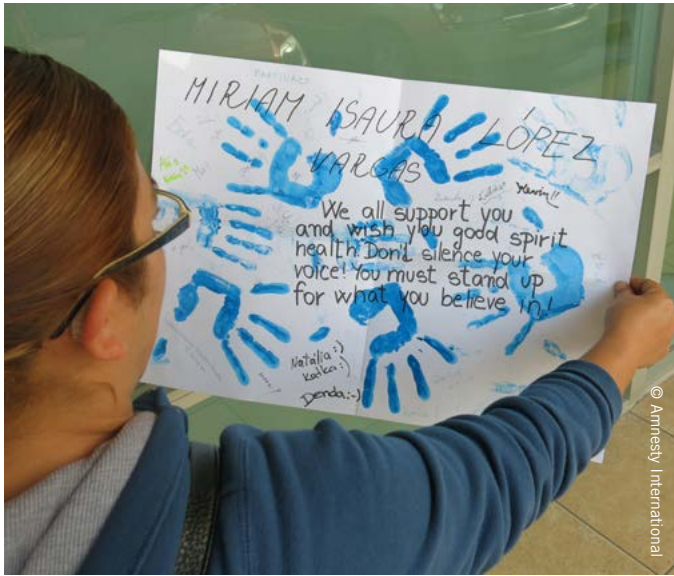 MIRIAM ISAURA LÓPEZ
VARGAS
We all support you
and wish you good spirit
health. Don't silence your
voice! You must stand up
for what you believe in!
Kevin!!
Natália :)
Katka :)
Denda :-)
© Amnesty International